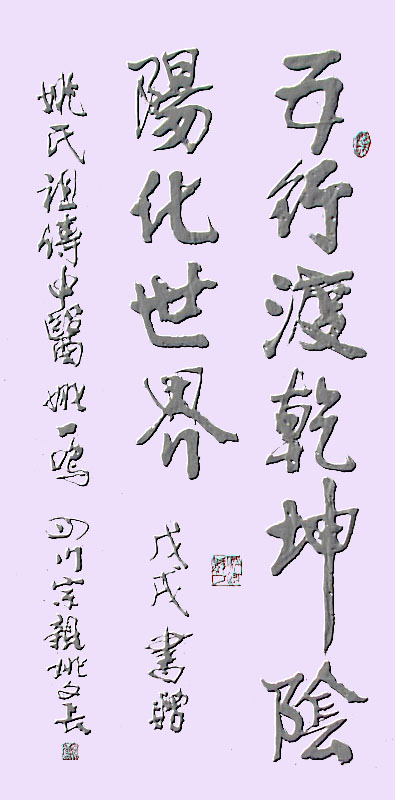 五行渡乾坤陰
陽化世界
戊戌書贈
姚氏祖傳中醫姚一鳴 四川宗親姚文長